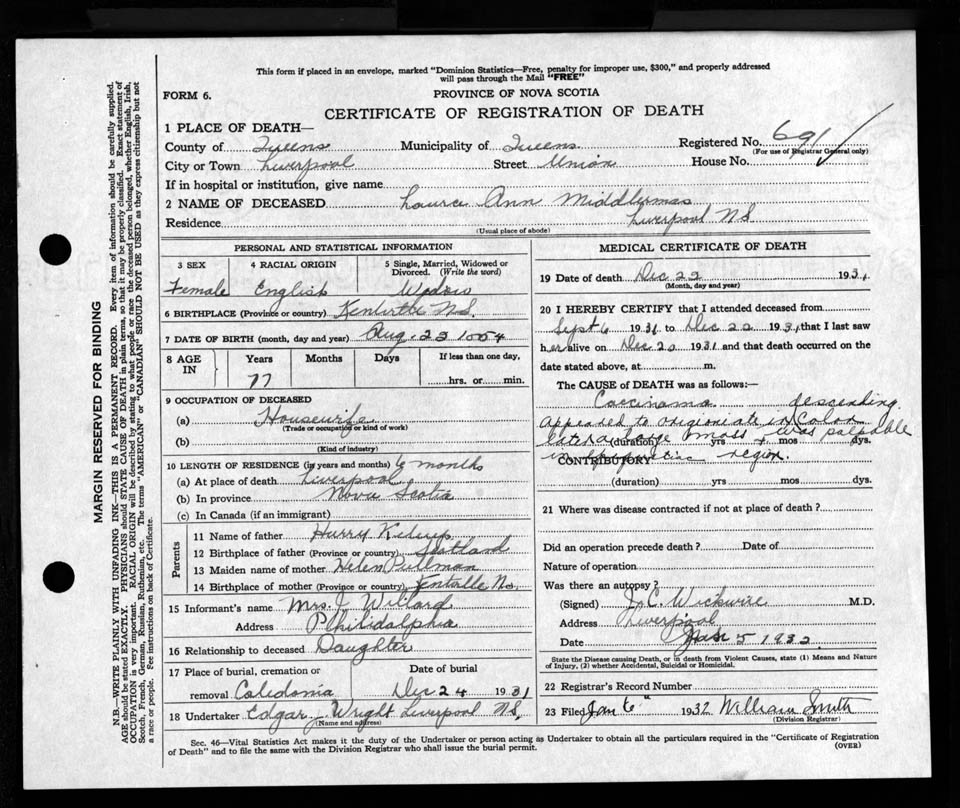 This form if placed in an envelope, marked "Dominion Statistics—Free, penalty for improper use, $300," and properly addressed
will pass through the Mail "FREE"
FORM 6.
PROVINCE OF NOVA SCOTIA
CERTIFICATE OF REGISTRATION OF DEATH
1 PLACE OF DEATH—
County of Queens Municipality of Queens Registered No. 691
(For use of Registrar General only)
City or Town Liverpool Street Union House No.
If in hospital or institution, give name
2 NAME OF DECEASED Laura Ann Middlemas
Residence Liverpool N.S.
(Usual place of abode)
PERSONAL AND STATISTICAL INFORMATION
3 SEX 4 RACIAL ORIGIN 5 Single, Married, Widowed or
Divorced. (Write the word)
Female English Widow
6 BIRTHPLACE (Province or country) N.S.
7 DATE OF BIRTH (month, day and year) Aug. 23 1854
8 AGE
IN
Years Months Days If less than one day,
77 hrs. or min.
9 OCCUPATION OF DECEASED
(a) Housewife
(Trade or occupation or kind of work)
(b)
(Kind of industry)
10 LENGTH OF RESIDENCE (in years and months) 6 months
(a) At place of death Liverpool
(b) In province Nova Scotia
(c) In Canada (if an immigrant)
Parents
11 Name of father Harry
12 Birthplace of father (Province or country) Scotland
13 Maiden name of mother Helen
14 Birthplace of mother (Province or country) N.S.
15 Informant's name Mrs. J. Willard
Address Philidalphia
16 Relationship to deceased Daughter
17 Place of burial, cremation or Date of burial
removal Caledonia Dec 24 1931
18 Undertaker Edgar J. Wright Liverpool N.S.
(Name and address)
MEDICAL CERTIFICATE OF DEATH
19 Date of death Dec 22 1931
(Month, day and year)
20 I HEREBY CERTIFY that I attended deceased from
Sept 6 1931 to Dec 22 1931, that I last saw
her alive on Dec 20 1931 and that death occurred on the
date stated above, at m.
The CAUSE of DEATH was as follows:
Carcinoma descending
appeared to origionate in Colon
large mass was palpable
(duration) yrs mos dys.
in region.
CONTRIBUTORY
(duration) yrs mos dys.
21 Where was disease contracted if not at place of death?
Did an operation precede death? Date of
Nature of operation
Was there an autopsy?
(Signed) J. C. Wickwire M.D.
Address Liverpool
Date Jan 5 1932
State the Disease causing Death, or in death from Violent Causes, state (1) Means and Nature
of Injury, (2) whether Accidental, Suicidal or Homicidal.
22 Registrar's Record Number
23 Filed Jan 6" 1932 William Smith
(Division Registrar)
Sec. 46—Vital Statistics Act makes it the duty of the Undertaker or person acting as Undertaker to obtain all the particulars required in the "Certificate of Registration
of Death" and to file the same with the Division Registrar who shall issue the burial permit.
(OVER)
MARGIN RESERVED FOR BINDING
N.B.—WRITE PLAINLY WITH UNFADING INK—THIS IS A PERMANENT RECORD. Every item of information should be carefully supplied.
AGE should be stated EXACTLY. PHYSICIANS should STATE CAUSE OF DEATH in plain terms, so that it may be properly classified. Exact statement of
OCCUPATION is very important. RACIAL ORIGIN will be described by stating to what people or race the deceased person belonged, whether English, Irish,
Scotch, French, German, Russian, Ruthenian, etc. The terms "AMERICAN" or "CANADIAN" SHOULD NOT BE USED as they express citizenship but not
a race or people. See instructions on back of Certificate.